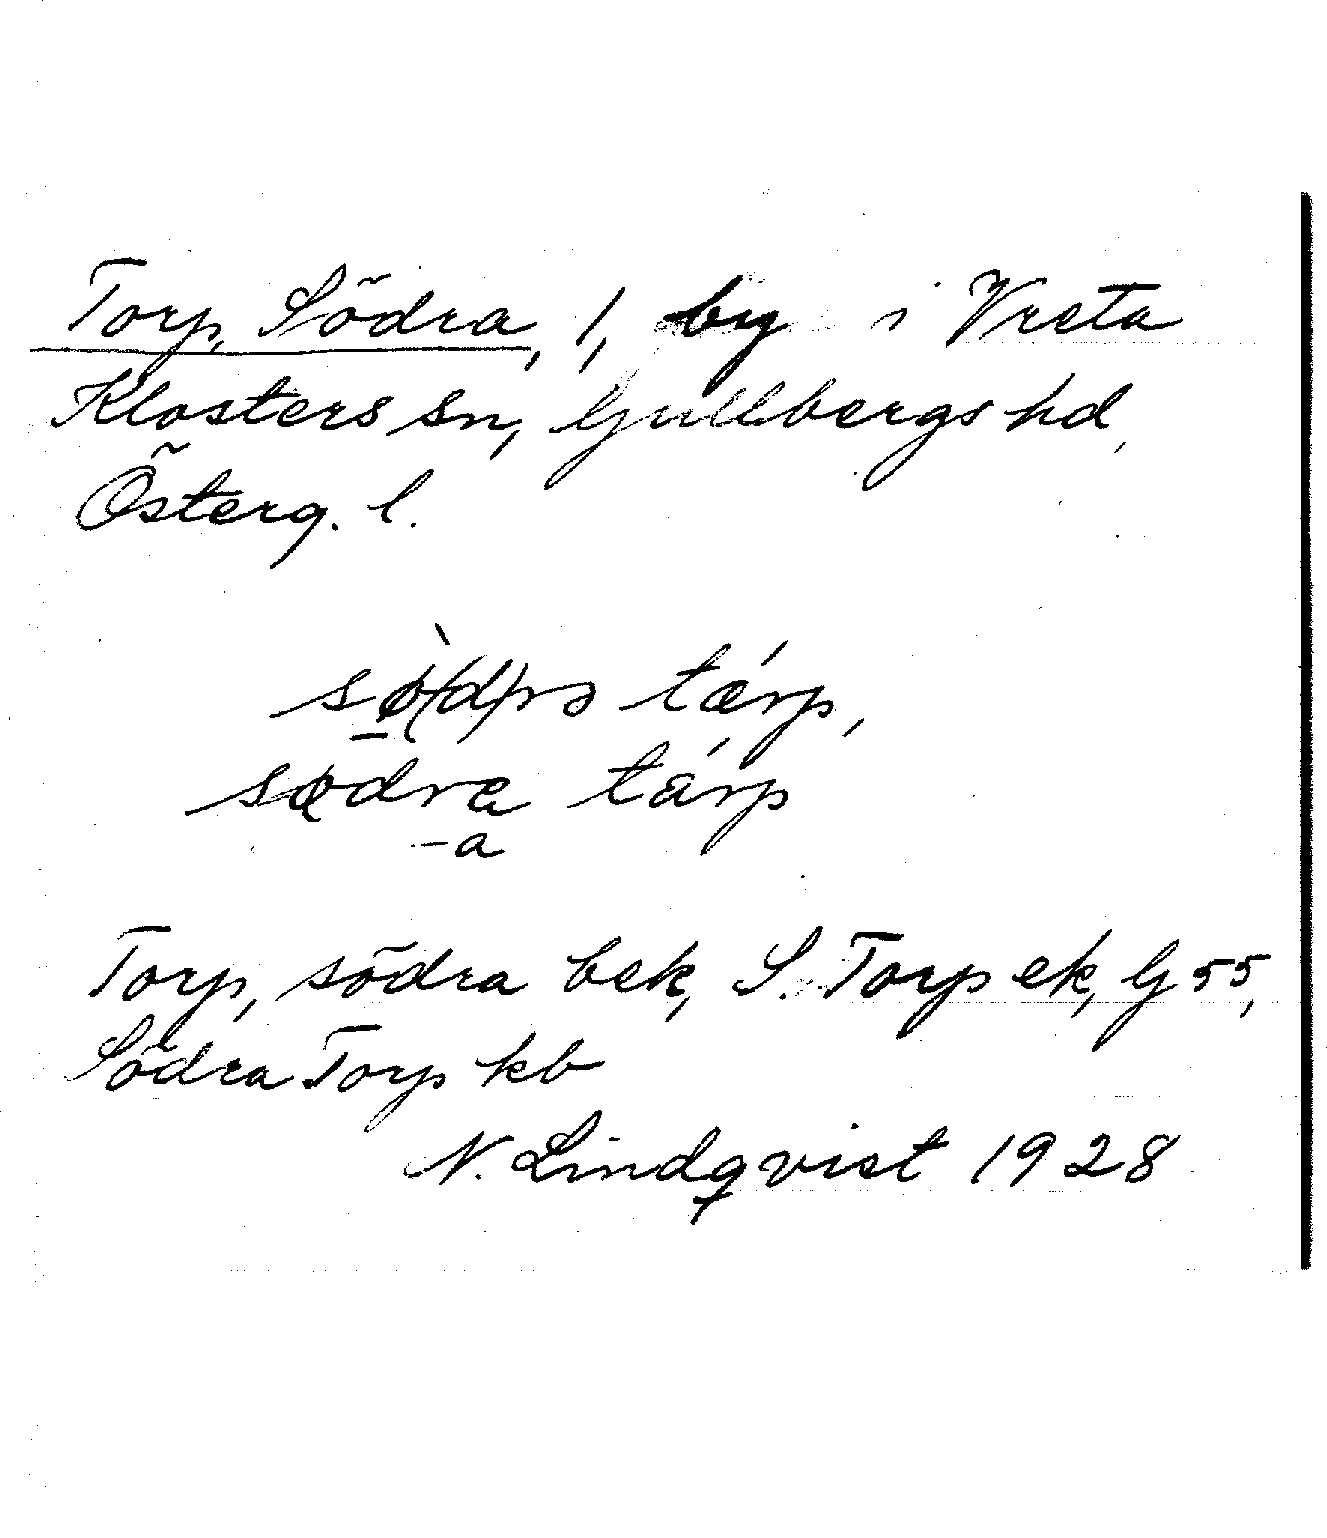 Torp, Södra, 1, by i Vreta
Klosters sn, Gullbergs hd,
Österg. l.
sø̀(d)rə tárp,
sødra tárp
-a
Torp, södra bek, S. Torp ek, G 55,
Södra Torp kb
N. Lindqvist 1928